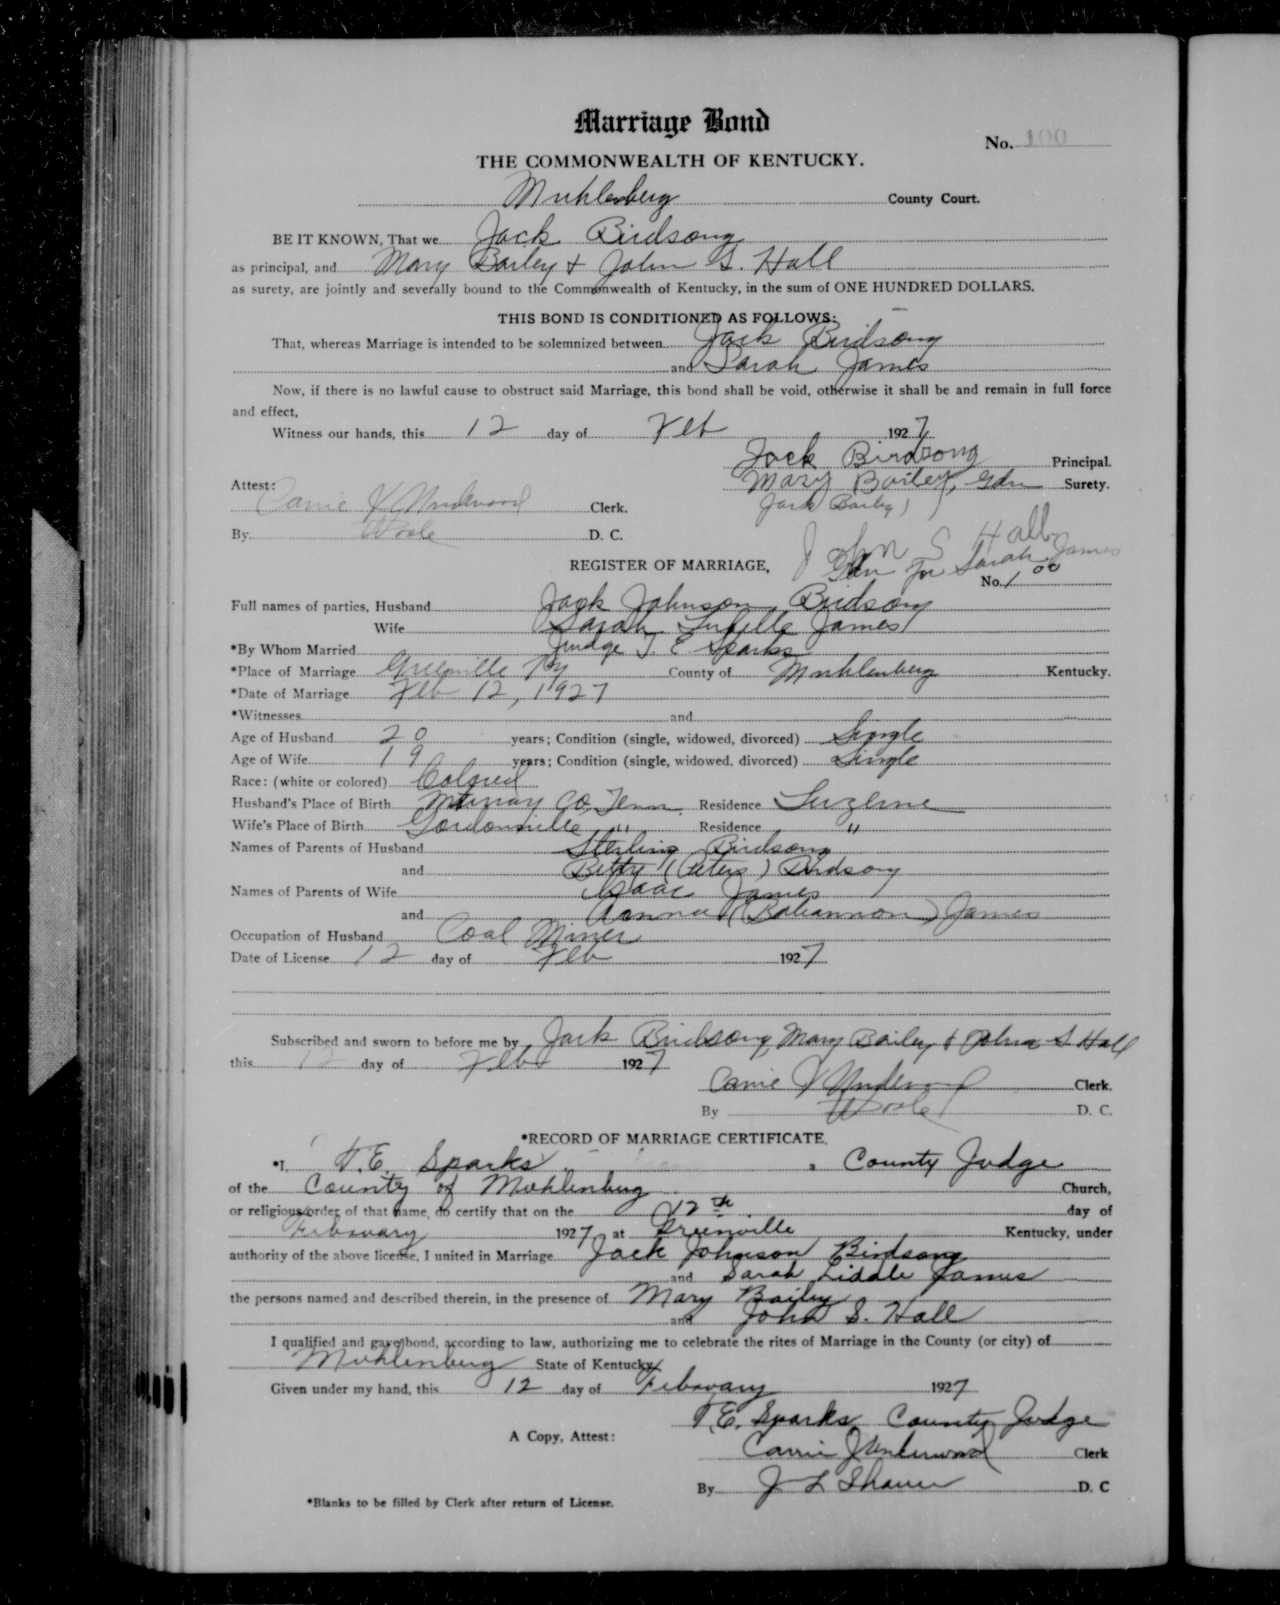 Marriage Bond
No. 100
THE COMMONWEALTH OF KENTUCKY.
Muhlenberg County Court.
BE IT KNOWN, That we Jack Birdsong
as principal, and Mary Bailey & John S. Hall
as surety, are jointly and severally bound to the Commonwealth of Kentucky, in the sum of ONE HUNDRED DOLLARS.
THIS BOND IS CONDITIONED AS FOLLOWS:
That, whereas Marriage is intended to be solemnized between Jack Birdsong
and Sarah James
Now, if there is no lawful cause to obstruct said Marriage, this bond shall be void, otherwise it shall be and remain in full force
and effect,
Witness our hands, this 12 day of Feb 1927
Jack Birdsong Principal.
Attest: Mary Bailey, Gdn Surety.
Carrie J Underwood Clerk. Jack Bailey)
By D. C.
John S Hall
Gdn for Sarah James
REGISTER OF MARRIAGE,
No. 1 00
Full names of parties, Husband Jack Johnson Birdsong
Wife Sarah James
*By Whom Married Judge T. E. Sparks
*Place of Marriage Greenville Ky County of Muhlenberg Kentucky.
*Date of Marriage Feb 12, 1927
*Witnesses and
Age of Husband 20 years; Condition (single, widowed, divorced) Single
Age of Wife 19 years; Condition (single, widowed, divorced) Single
Race: (white or colored) Colored
Husband's Place of Birth Murray Co, Tenn. Residence Luzerne
Wife's Place of Birth Gordonville " Residence "
Names of Parents of Husband Sterling Birdsong
and Betty (Peters) Birdsong
Names of Parents of Wife Isaac James
and Anna (Bohannon) James
Occupation of Husband Coal Miner
Date of License 12 day of Feb 1927
Subscribed and sworn to before me by Jack Birdsong Mary Bailey & John S Hall
this 12 day of Feb 1927
Carrie J Underwood Clerk.
By D. C.
*RECORD OF MARRIAGE CERTIFICATE.
*I, T. E. Sparks, a County Judge
of the County of Muhlenburg Church,
or religious order of that name, do certify that on the 12th day of
Febuary 1927 at Greenville Kentucky, under
authority of the above license, I united in Marriage Jack Johnson Birdsong
and Sarah Liddle James
the persons named and described therein, in the presence of Mary Bailey
and John S. Hall
I qualified and gave bond, according to law, authorizing me to celebrate the rites of Marriage in the County (or city) of
Muhlenberg State of Kentucky.
Given under my hand, this 12 day of Febuary 1927
T. E. Sparks County Judge
A Copy, Attest: Carrie J Underwood Clerk
By J L Shaver D. C
*Blanks to be filled by Clerk after return of License.